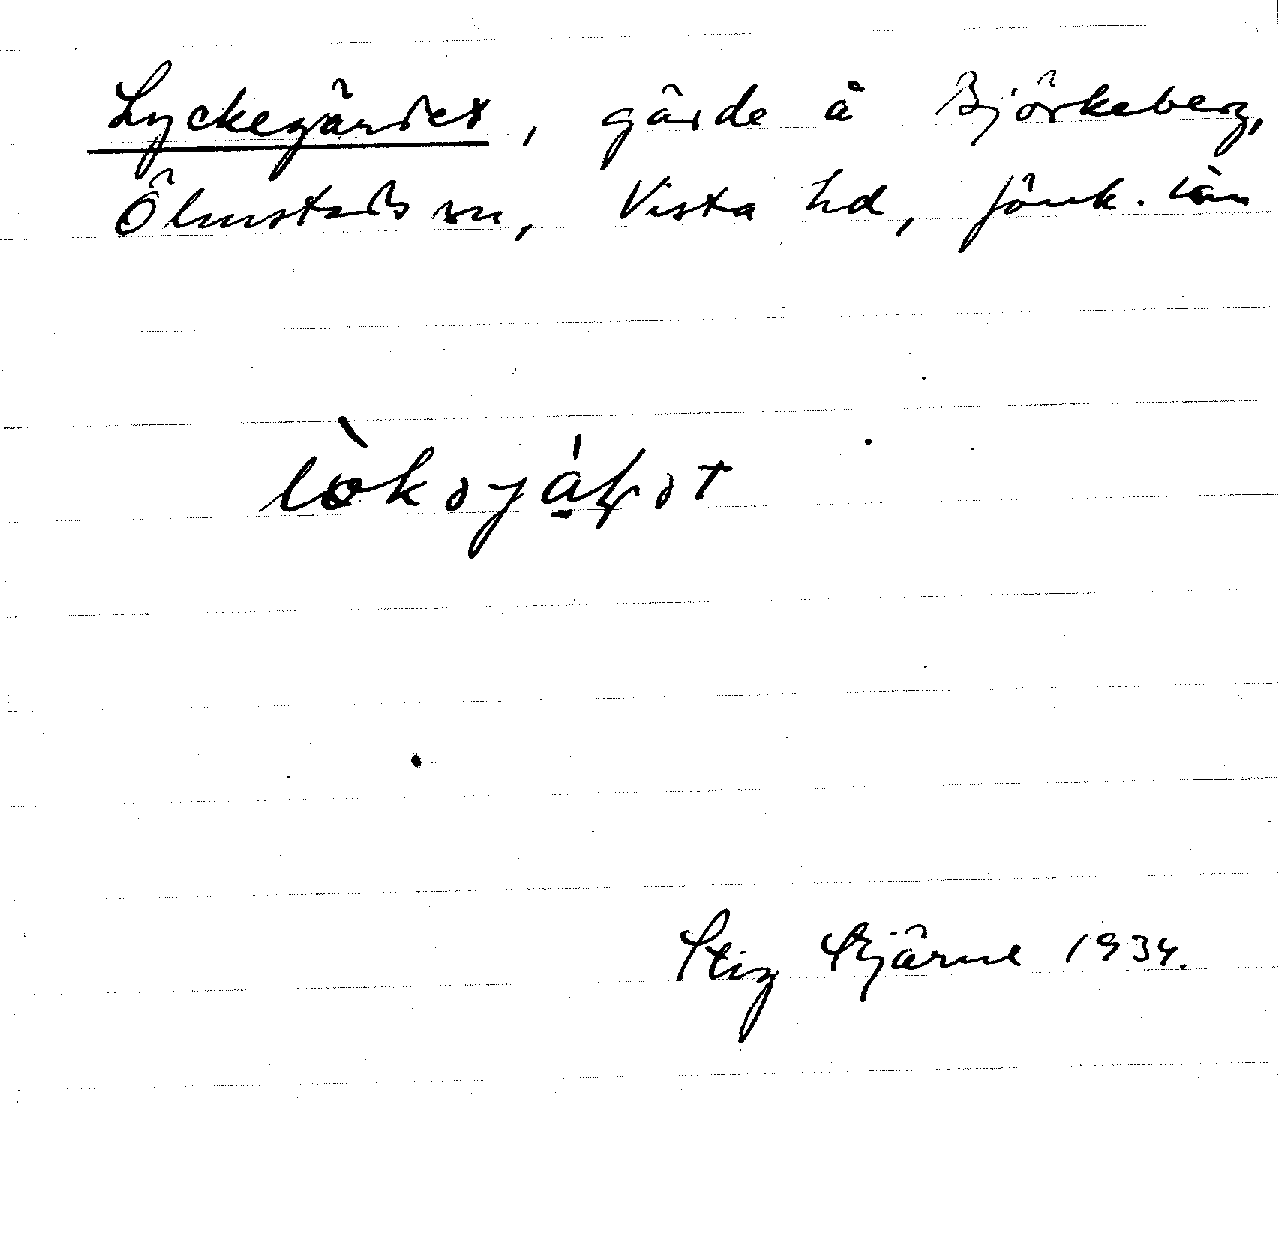 Lyckegärdet, gärde å Björkeberg,
Ölmstads sn, Vista hd, Jönk. län
Stig Stjärne 1934.